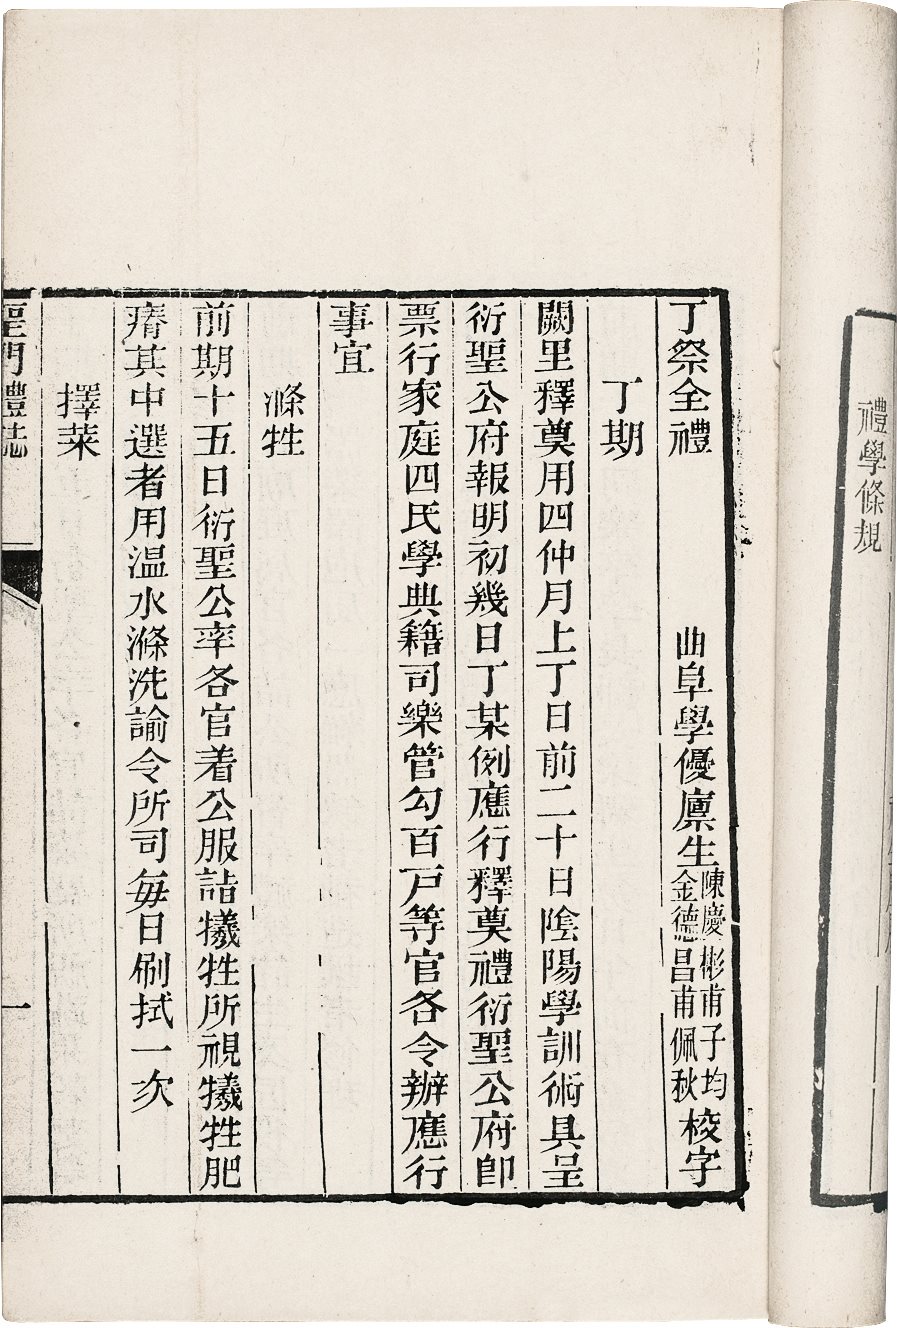 禮學條規
丁祭全禮
曲阜學優廩生陳慶彬甫子均金德懋昌甫佩秋校字
丁期
闕里釋奠用四仲月上丁日前二十日陰陽學訓術具呈
衍聖公府報明初幾日丁某例應行釋奠禮衍聖公府卽
票行家庭四氏學典籍司樂管勾百戶等官各令辦應行
事宜
滌牲
前期十五日衍聖公率各官着公服詣犧牲所視犧牲肥
瘠其中選者用溫水滌洗諭令所司每日刷拭一次
擇菜
聖門禮誌
一